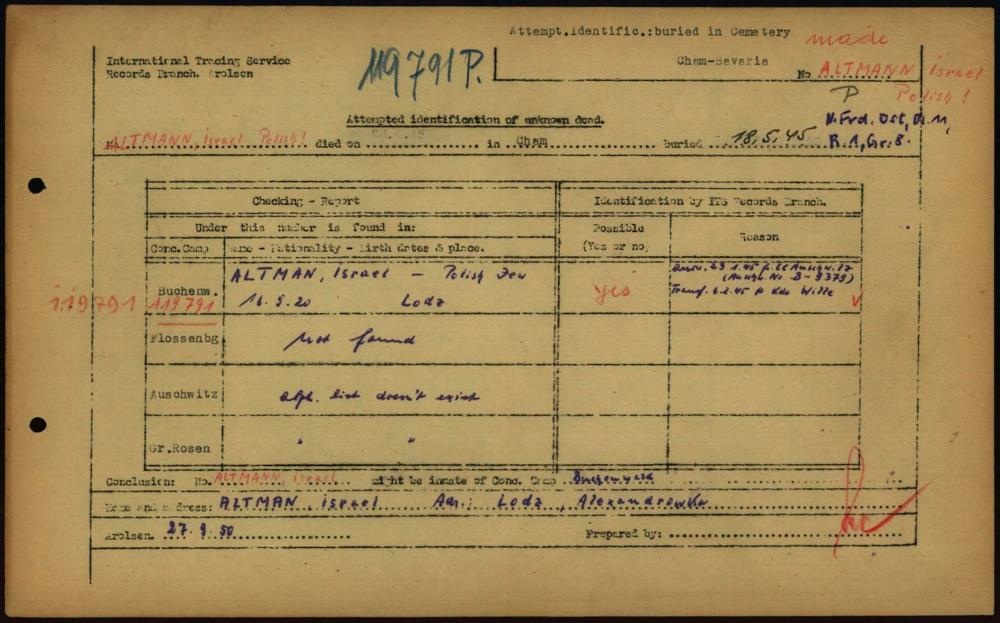 Attempt.Identific.:buried in Cemetery made
119791 P.
International Tracing Service
Records Branch. Arolsen
Cham-Bavaria
No ALTMANN Israel
P Polish!
Attempted identification of unknown dead.
N.Frd. Ost,
ALTMANN, Israel Polish! died on in Cham buried 18.5.45 R.1, Gr.8.
Checking - Report
Identification by ITS Records Branch.
Under this number is found in:
Possible
(Yes or no)
Reason
Conc.Camp
Name - Nationality - Birth dates & place.
119791
Buchenw.
119791
ALTMAN, Israel - Polish Jew
16.9.20 Lodz
yes
23.1.45 f. CC Auschwitz
(Auschw. No B-9379)
Transf. 6.2.45 Kdo Wille
Flossenbg
Not found
Auschwitz
alph. list doesn't exist
Gr.Rosen
" "
Conclusion: No. ALTMANN, Israel might be inmate of Conc. Camp Buchenwald
Name and address: ALTMAN, Israel Adr.: Lodz, Alexandrowka
Arolsen. 27.9.50 Prepared by: